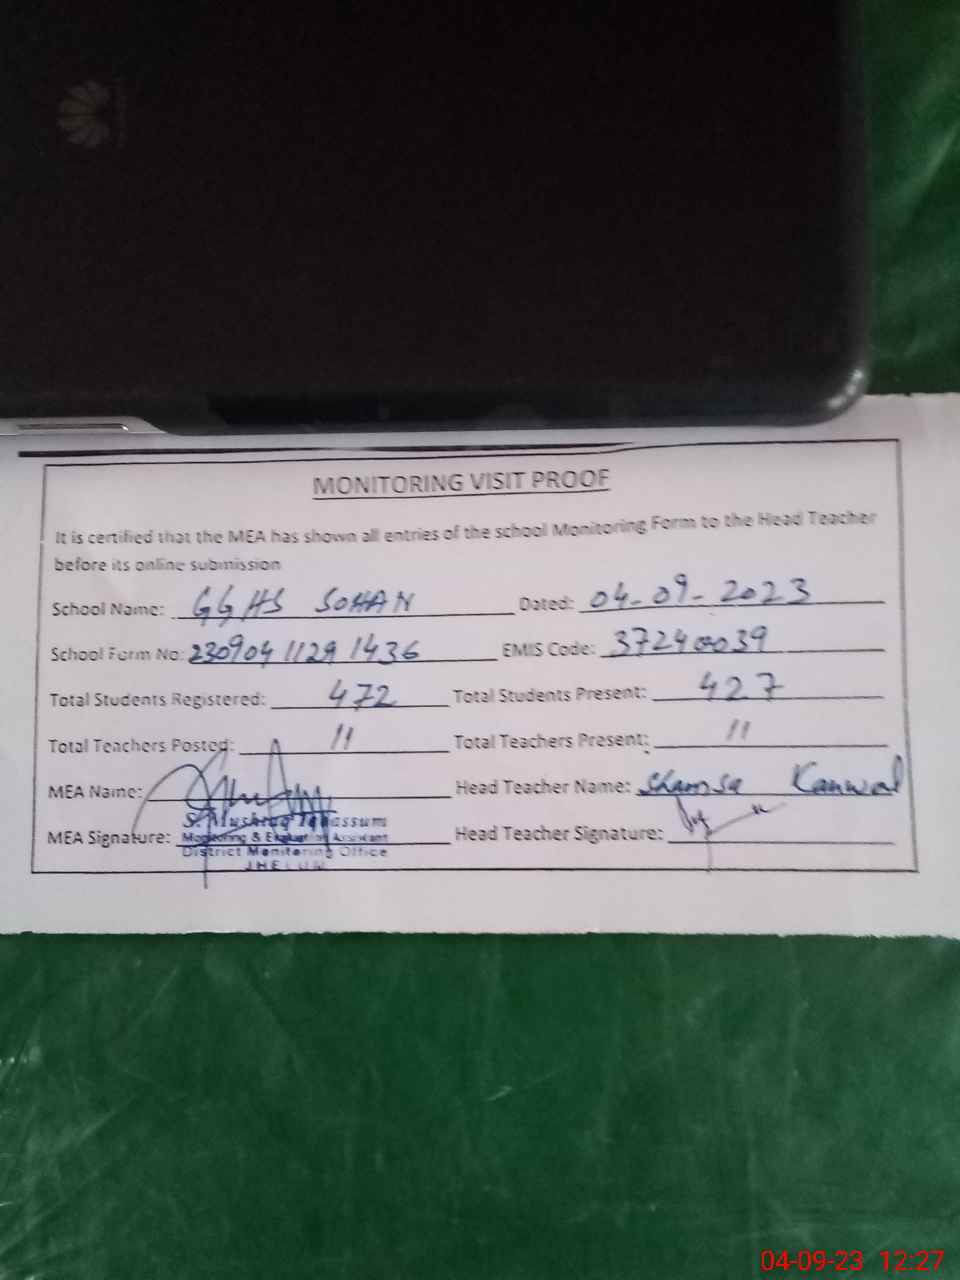 MONITORING VISIT PROOF
It is certified that the MEA has shown all entries of the school Monitoring Form to the Head Teacher
before its online submission
School Name: GGHS SOHAN Dated: 04-09-2023
School Form No: 230904 1129 1436 EMIS Code: 37240039
Total Students Registered: 472 Total Students Present: 427
Total Teachers Posted: 11 Total Teachers Present: 11
MEA Name: Head Teacher Name: Shamsa Kanwal
MEA Signature: Head Teacher Signature:
Monitoring & Evaluation Assistant
District Monitoring Office
JHELUM
04-09-23 12:27